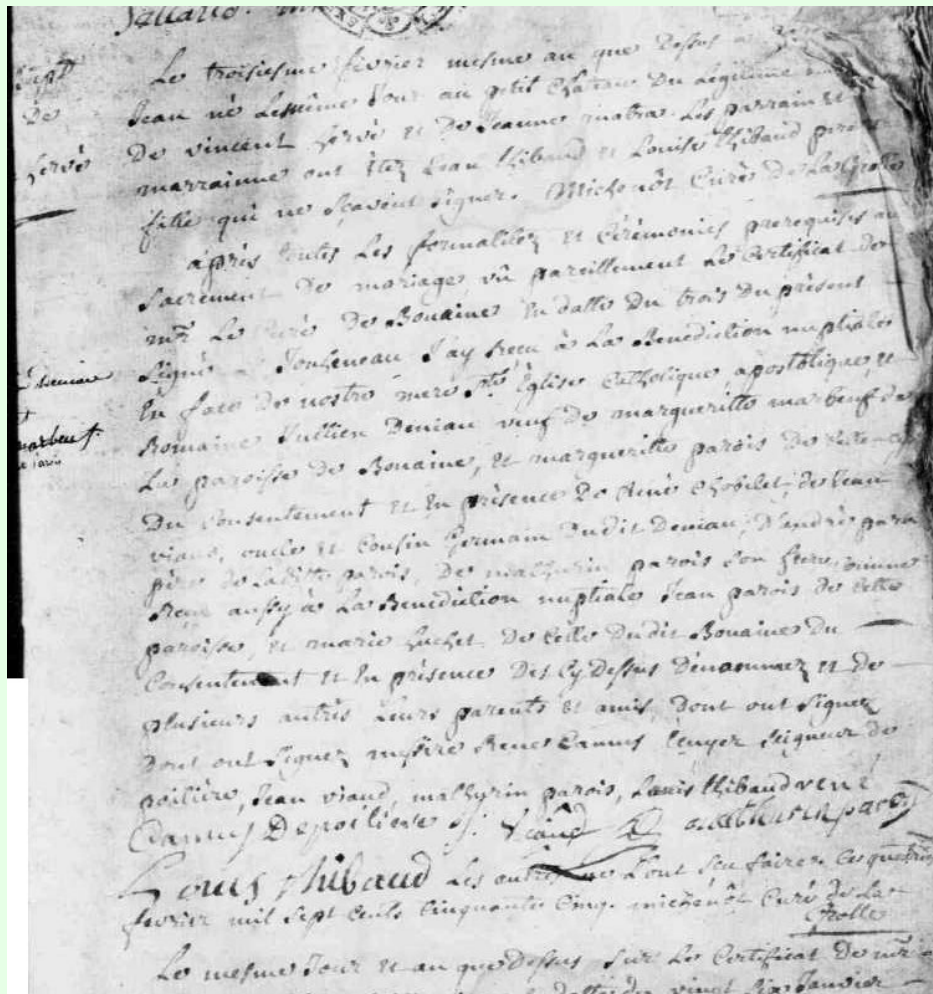 Le troisiesme fevrier mesme an que dessus a
Jean né le même jour au petit Chateau du légitime
hervé De vincent hervé et de Jeanne matra. Les parrain et
marrainne ont étez Jean thibaud et Louise thibaud
fille qui ne scavent signer. Michenôt Curé de La Grolle
après toutes les formalitez et Cérémonies prerequises au
Sacrement de mariage, vû pareillement le certificat de
mr Le Curé de Bouaine en datte du trois du présent
signé J'ay receu à La Benediction nuptiale
Deniau
En face de nostre mere Ste Église Catholique, apostolique, et
marbeuf. Romaine Jullien Deniau veuf de margueritte marbeuf de
La paroisse de Bouaine, et margueritte parois de cette cy
Du Consentement et en présence de René Chobelet, de Jean
viaud, oncle et Cousin germain dudit Deniau, D'andré
père de Laditte parois, de mathurin parois son frere, comme
Receu aussy à La Benediction nuptiale Jean parois de cette
paroisse, et marie huchet de celle dudit Bouaine du
Consentement et en présence des cy dessus dénommez et de
plusieurs autres Leurs parents et amis, dont ont signez
dont ont signez messire René Camus Ecuyer Seigneur de
poiliere, Jean viaud, mathurin parois, Louis thibaud rené
Camus Depoiliere J. Viaud mathurin parois
Louis thibaud Les autres ne l'ont sçu faire. Ce quatrie
fevrier mil sept cents cinquante cinq. michenôt Curé de La
Grolle
Le mesme Jour et an que dessus sur Le Certificat de mr
vingt six Janvier